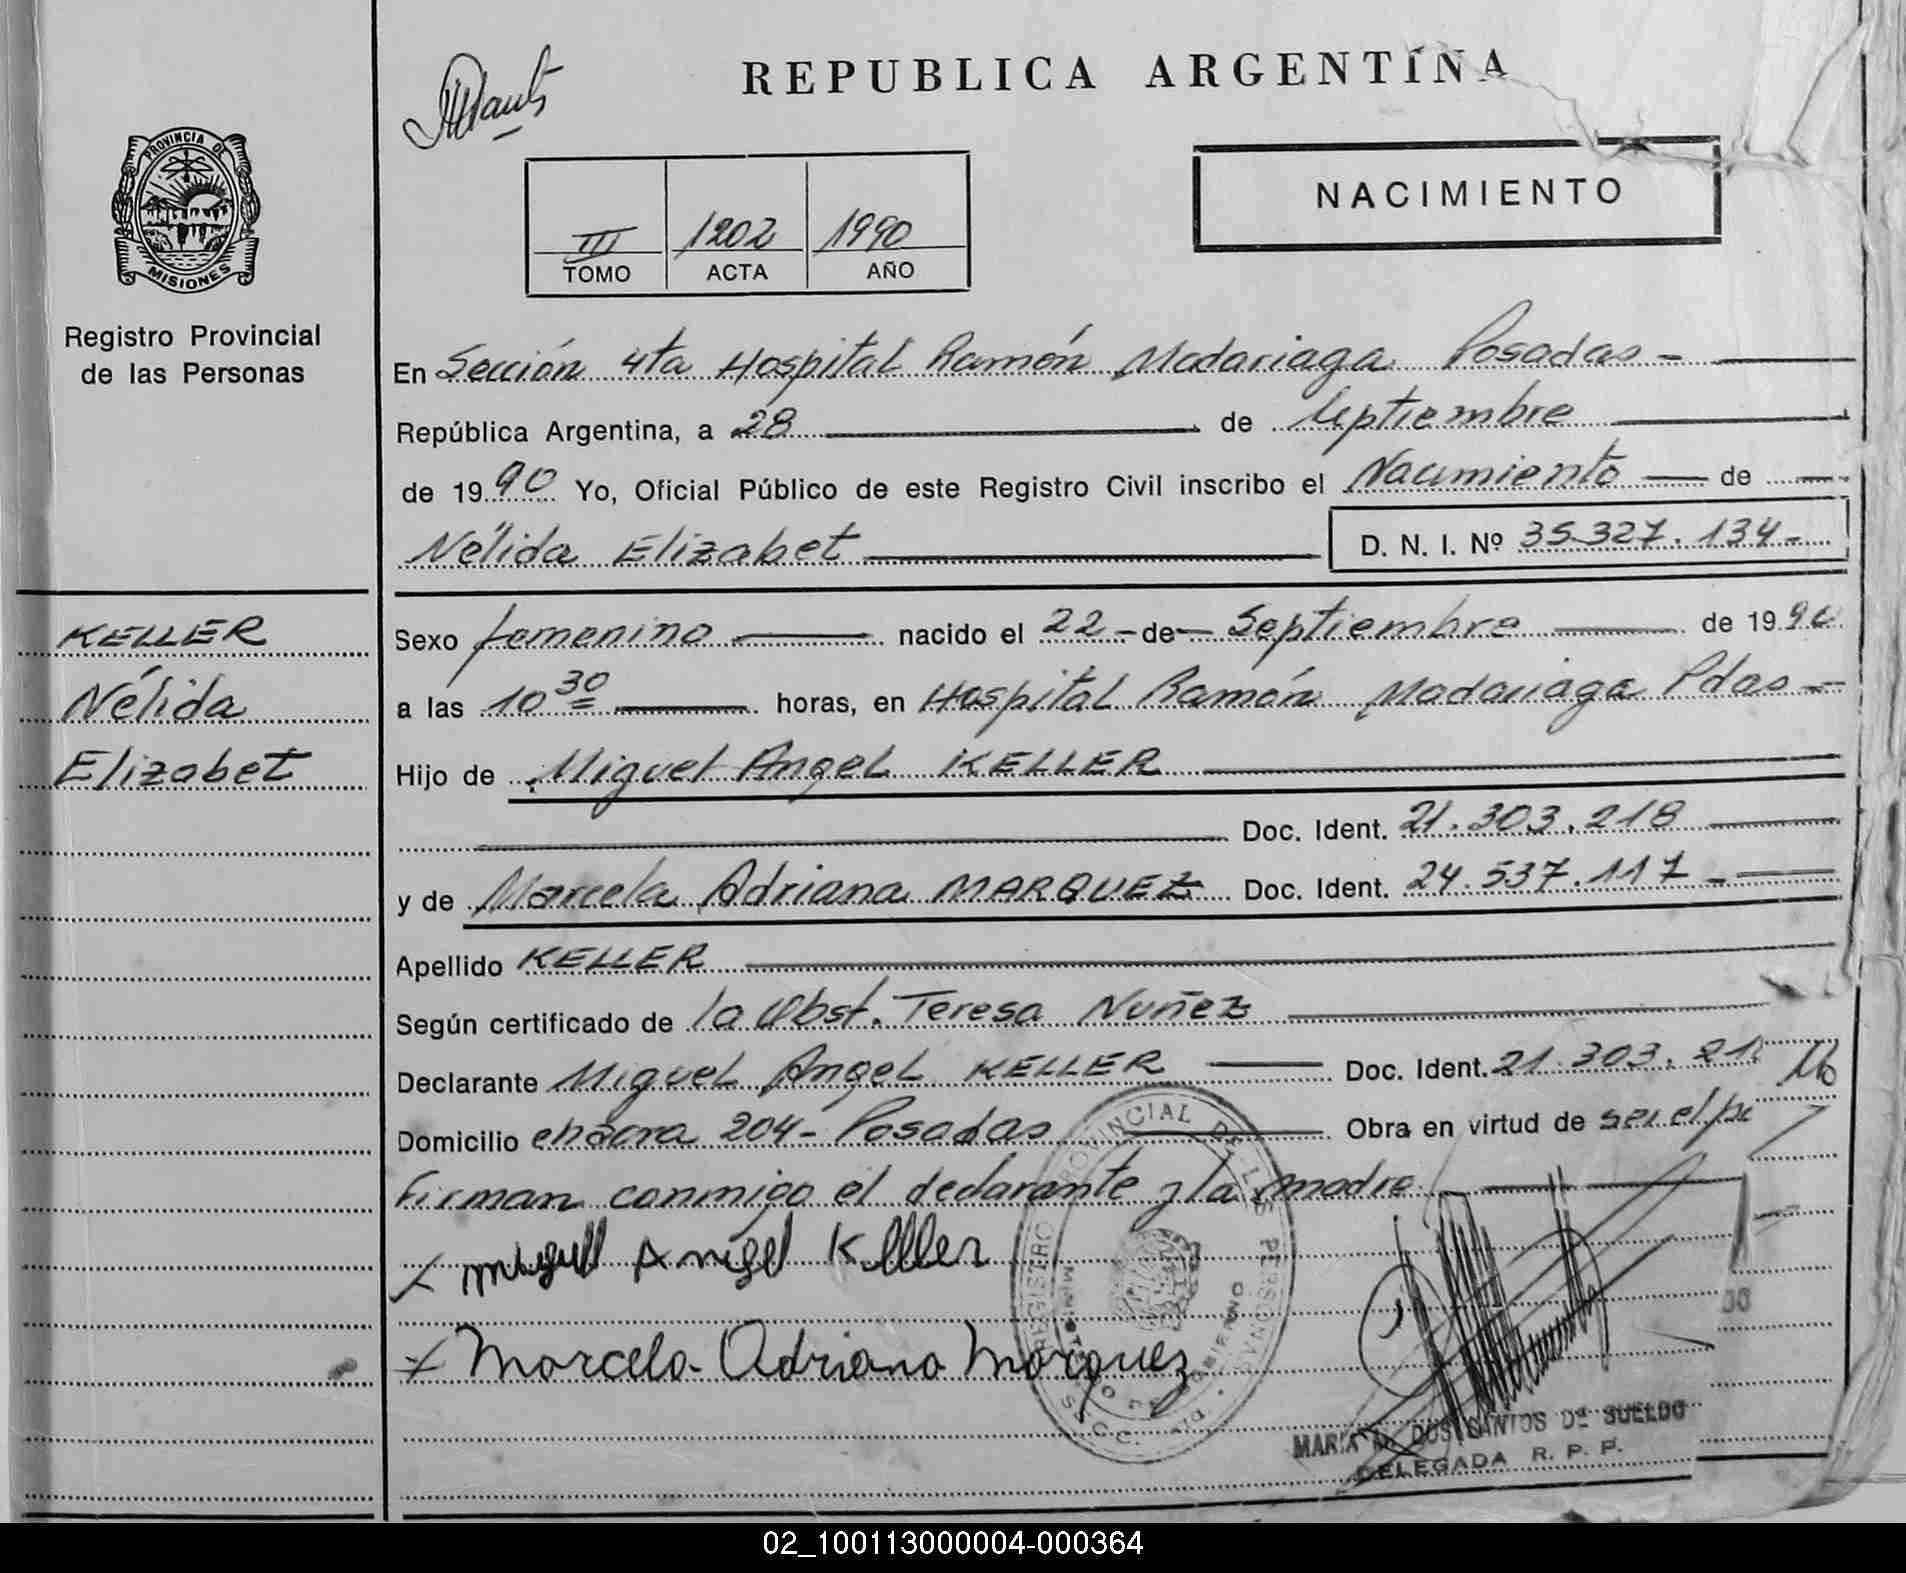 REPUBLICA ARGENTINA
PROVINCIA DE
MISIONES
Registro Provincial
de las Personas
NACIMIENTO
III 1202 1990
TOMO ACTA AÑO
En Sección 4ta Hospital Ramón Madariaga Posadas -
República Argentina, a 28 de Septiembre
de 1990 Yo, Oficial Público de este Registro Civil inscribo el Nacimiento de
Nélida Elizabet D. N. I. Nº 35.327.134-
KELLER
Nélida
Elizabet
Sexo femenino nacido el 22 - de - Septiembre de 1990
a las 10 30 horas, en Hospital Ramón Madariaga Pdas -
Hijo de Miguel Angel KELLER
Doc. Ident. 21.303.218
y de Marcela Adriana MARQUEZ Doc. Ident. 24.537.117 -
Apellido KELLER
Según certificado de la Obst. Teresa Nuñez
Declarante Miguel Angel KELLER Doc. Ident. 21.303.21
Domicilio chacra 204 - Posadas Obra en virtud de ser el
Firman conmigo el declarante y la madre
x Miguel Angel Keller
x Marcela Adriana Marquez
REGISTRO PROVINCIAL DE LAS PERSONAS
MARIA DOS SANTOS DE SUELDO
DELEGADA R. P. P.
02_100113000004-000364